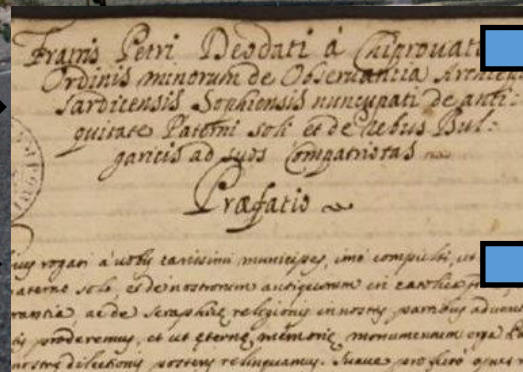 Fratris Petri Deodati à Chiprovatz
Ordinis minorum de Observantia Archiep
Sardicensis Sophiensis nuncupati de anti-
quitate Paterni soli et de rebus Bul-
garicis ad suos Compatriotas
Præfatio
rogati à vobis carissimi municipes, imò compulsi, ut
paterno solo, et de nostrorum antiquorum in catholica
ac de seraphicæ religionis in nostris partibus
proderemus, et ut æternæ memoriæ monumentum erga
nostræ dilectionis posteris relinquamus. Suave